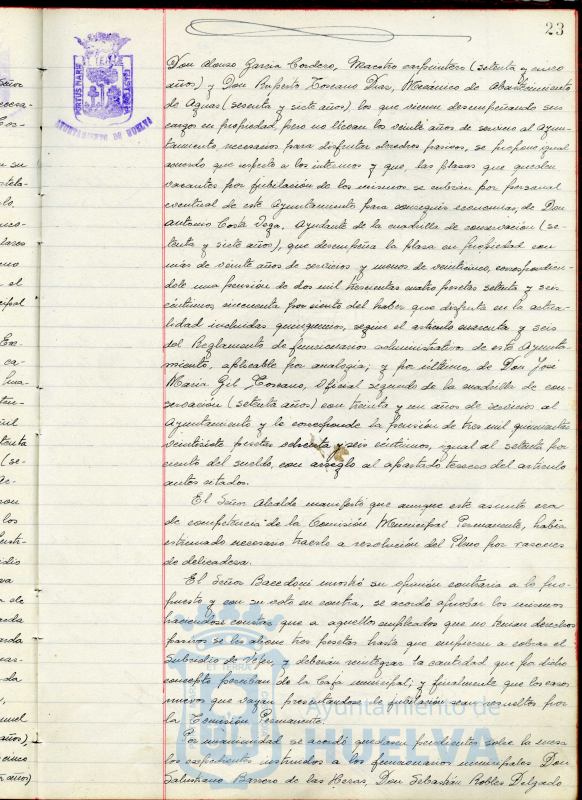 23
Don Alonso García Cordero, Maestro carpintero (setenta y cinco
años) y Don Ruperto Toscano Dias, Mecanico de Abastecimiento
de Aguas (sesenta y siete años) los que vienen desempeñando sus
cargos en propiedad, pero no llevan los veinte años de servicio al Ayun-
tamiento necesarios para disfrutar derechos pasivos, se propone igual
acuerdo que respecto a los internos y que, las plazas que queden
vacantes por jubilación de los mismos se cubran por personal
eventual de este Ayuntamiento para conseguir economias, de Don
Antonio Costa Vega, Ayudante de la cuadrilla de conservación (se-
tenta y siete años), que desempeña la plaza en propiedad con
más de veinte años de servicios y menos de veinticinco, correspondien-
dole una pensión de dos mil trescientas cuatro pesetas setenta y seis
céntimos, cincuenta por ciento del haber que disfruta en la actua-
lidad incluidos quinquenios, según el articulo cincuenta y seis
del Reglamento de funcionarios administrativos de este Ayunta-
miento, aplicable por analogia; y por último, de Don José
Maria Gil Toscano, Oficial segundo de la cuadrilla de con-
servación (setenta años) con treinta y un años de servicio al
Ayuntamiento y le corresponde la pensión de tres mil quinientas
veintisiete pesetas y seis céntimos, igual al setenta por
ciento del sueldo, con arreglo al apartado tercero del articulo
antes citados.
El Señor Alcalde manifestó que aunque este asunto era
de competencia de la Comisión Municipal Permanente, habia
estimado necesario traerlo a resolución del Pleno por razones
de delicadeza.
El Señor Bacedoni mostró su opinión contraria a lo pro-
puesto y con su voto en contra, se acordó aprobar los mismos
haciendose constar que a aquellos empleados que no tenian derechos
pasivos se les abone tres pesetas hasta que empiecen a cobrar el
Subsidio de Vejez, y deberán reintegrar la cantidad que por dicho
concepto perciban de la Caja municipal; y finalmente que los casos
nuevos que vayan presentandose de jubilación sean resueltos por
la Comisión Permanente.
Por unanimidad se acordó quedasen pendientes sobre la mesa
los expedientes instruidos a los funcionarios municipales Don
Salustiano Barrero de las Heras, Don Sebastián Robles Delgado
AYUNTAMIENTO DE HUELVA
Ayuntamiento de
HUELVA